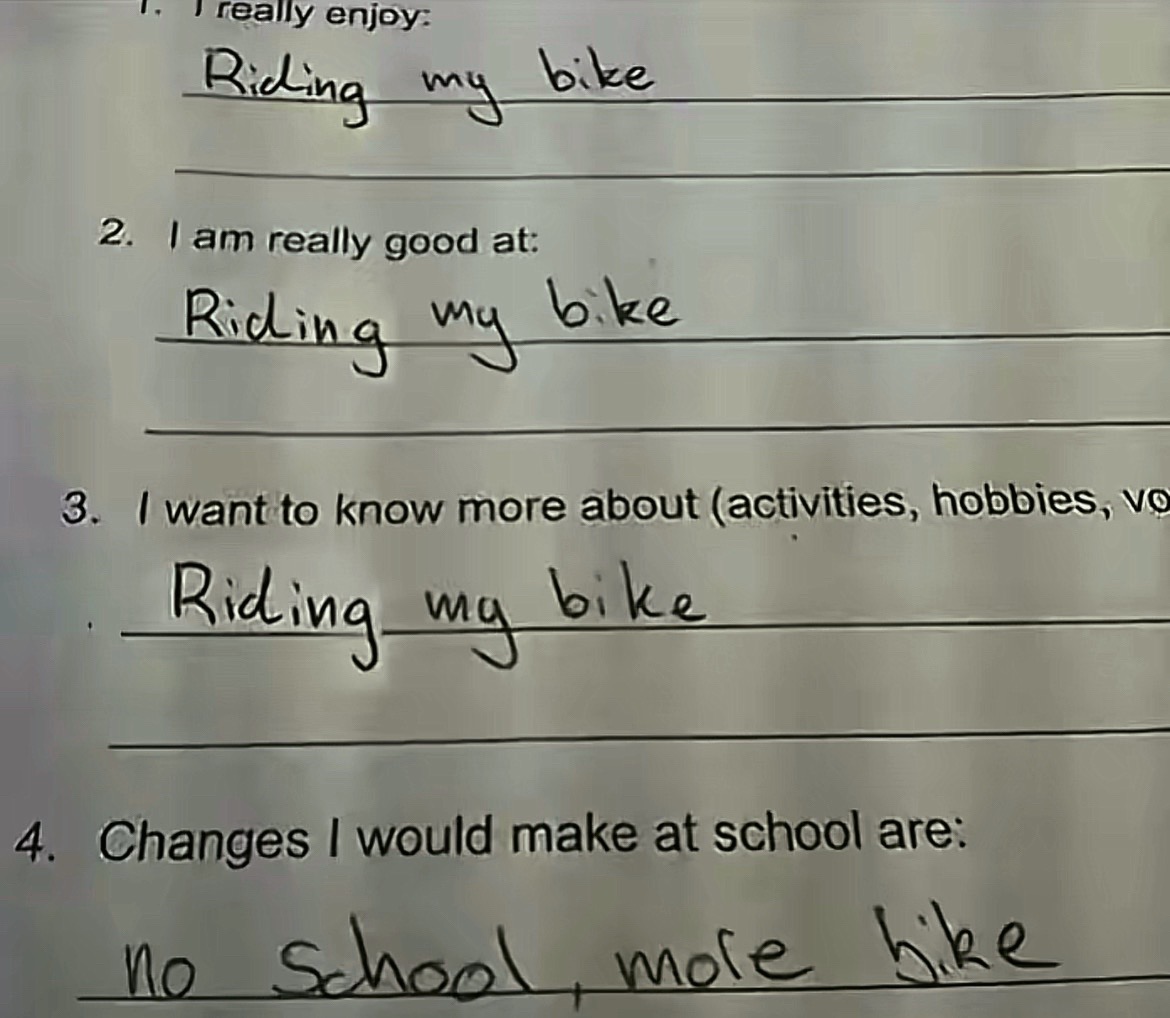 1. I really enjoy:
Riding my bike
2. I am really good at:
Riding my bike
3. I want to know more about (activities, hobbies,
Riding my bike
4. Changes I would make at school are:
no school, more bike